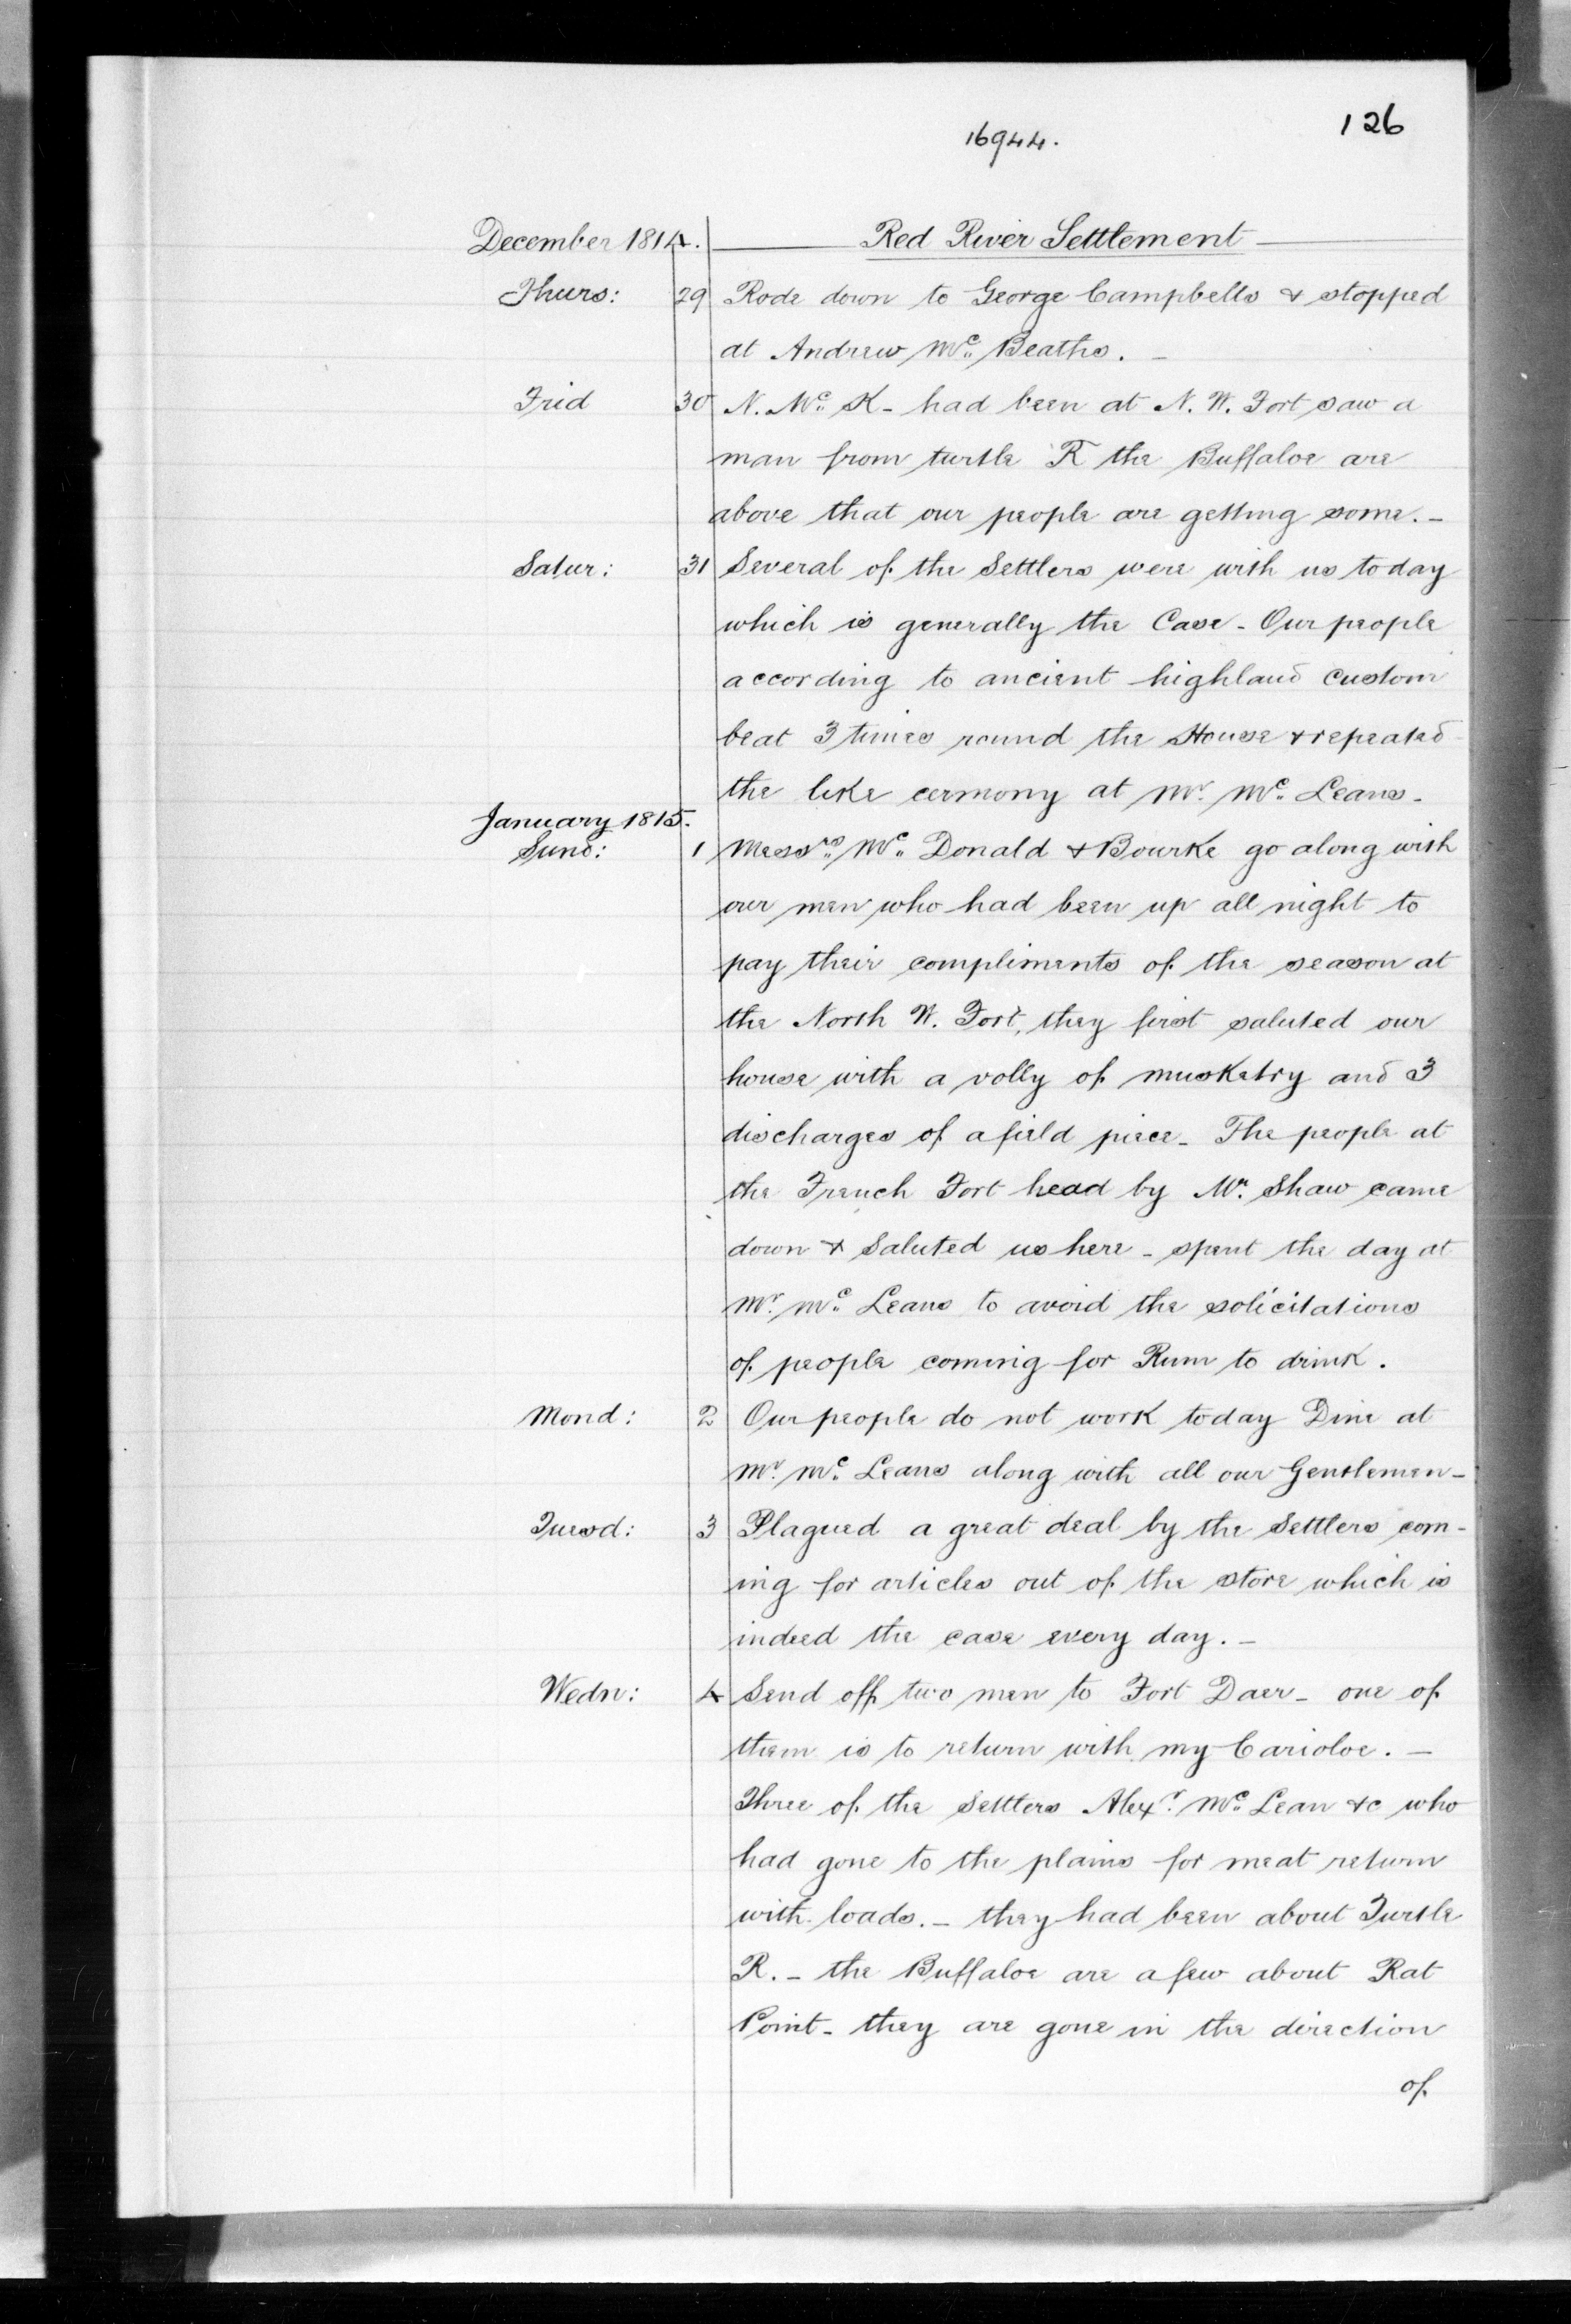 126
16944.
December 1814. Red River Settlement
Thurs: 29 Rode down to George Campbells & stopped
at Andrew Mc Beaths. -
Frid 30 N. Mc K- had been at N. W. Fort saw a
man from turtle R the Buffaloe are
above that our people are getting some. -
Satur: 31 Several of the Settlers were with us today
which is generally the Case - Our people
according to ancient highland custom
beat 3 times round the House & repeated
the like cermony at Mr. Mc Leans -
January 1815.
Sund: 1 Messrs Mc Donald & Bourke go along with
our men who had been up all night to
pay their compliments of the season at
the North W. Fort, they first saluted our
house with a volly of musketry and 3
discharges of a field piece - The people at
the French Fort head by Mr. Shaw came
down & Saluted us here - spent the day at
Mr. Mc Leans to avoid the solicitations
of people coming for Rum to drink.
Mond: 2 Our people do not work today Dine at
Mr. Mc Leans along with all our Gentlemen -
Tuesd: 3 Plagued a great deal by the Settlers com-
ing for articles out of the store which is
indeed the case every day. -
Wedn: 4 Send off two men to Fort Daer - one of
them is to return with my Carioloe. -
Three of the Settlers Alexr. Mc Lean &c who
had gone to the plains for meat return
with loads. - they had been about Turtle
R. - the Buffaloe are a few about Rat
Point - they are gone in the direction
of